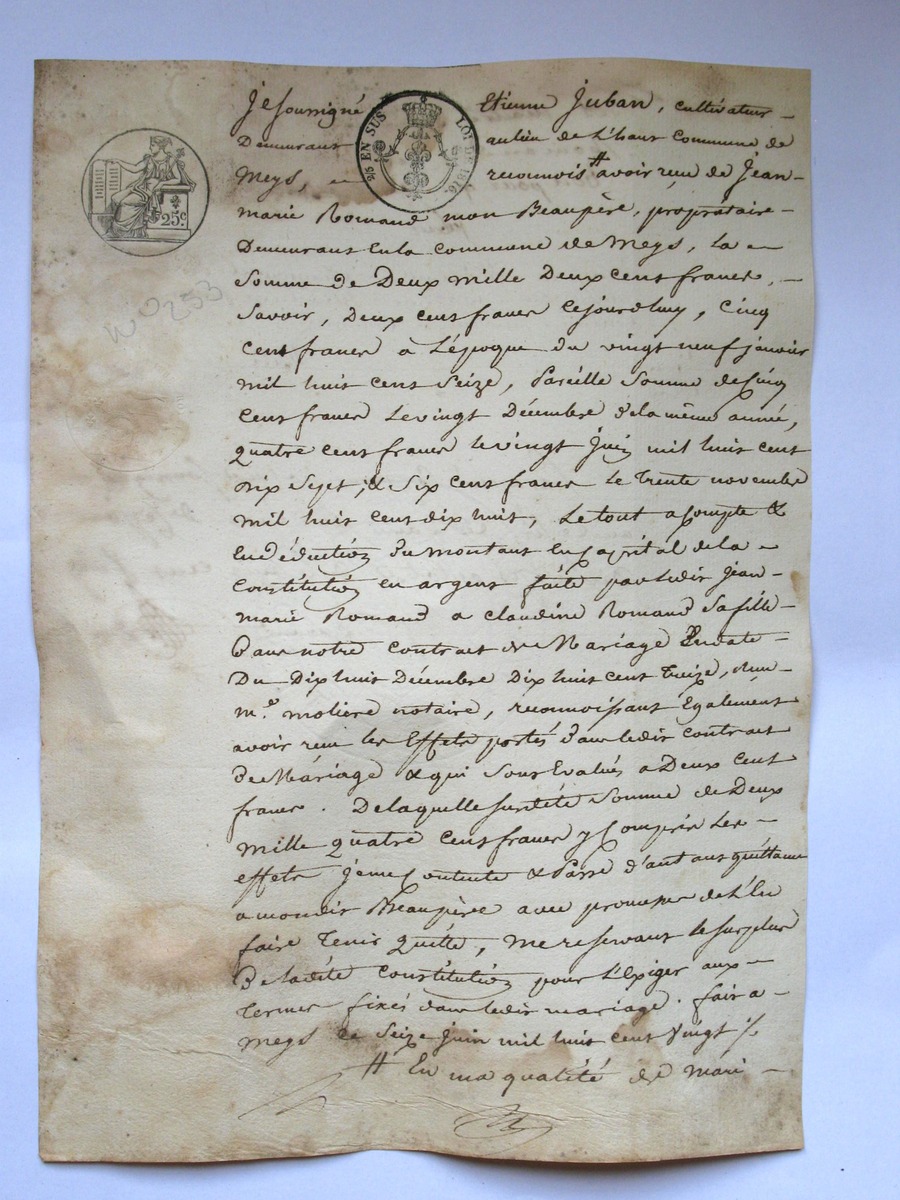 Je Soussigné Etienne Juban, cultivateur
EN SUS LOI DE 1816.
25c.
Demeurant au lieu de L'haut Commune de
Meys, reconnois # avoir reçu de Jean-
marie Romand mon Beaupère, propriétaire
Demeurant En la commune de Meys, La
Somme de Deux mille Deux cent francs,
Savoir, Deux cent francs cejourdhuy, Cinq
N° 253
cent francs a L'époque du vingt neuf janvier
mil huit cent Seize, Pareille Somme de Cinq
cent francs Le vingt Décembre de la même année,
quatre cent francs le vingt Juin mil huit cent
dix Sept, & Six cent francs Le Trente novembre
mil huit cent dix huit, Le tout a Compte &
En déduction du montant En Capital de la
Constitution en argent faite par ledit Jean-
marie Romand a claudine Romand Sa fille
Dans notre contrat de Mariage En date
Du Dix huit Décembre Dix huit cent Treize, reçu
m.e moliere notaire, reconnoissant Également
avoir reçu les Effets portés dans ledit contrat
de Mariage & qui Sont Evalués a Deux cent
francs. De laquelle Somme de Deux
mille quatre cent francs y Compris Les
effets je me Contente & Passe d'autant quittance
a mondit Beaupère avec promesse de L'En
faire Tenir Quitte, me reservant le surplus
De ladite constitution pour L'Exiger aux
Termes fixés dans ledit mariage. fait a
Meys Le Seize juin mil huit cent Vingt ./.
# En ma qualité de mari